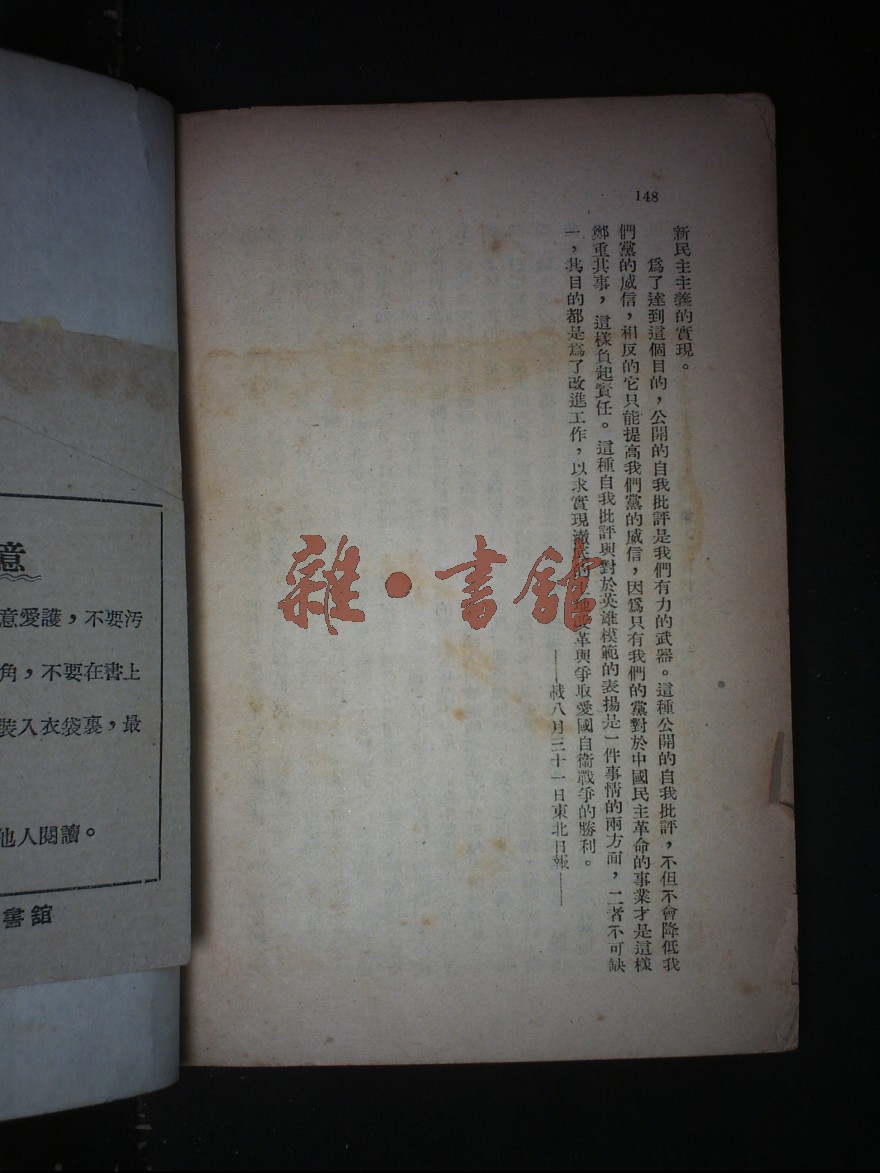 148
新民主主義的實現。
爲了達到這個目的，公開的自我批評是我們有力的武器。這種公開的自我批評，不但不會降低我
們黨的威信，相反的它只能提高我們黨的威信，因爲只有我們的黨對於中國民主革命的事業才是這樣
鄭重其事，這樣負起責任。這種自我批評與對於英雄模範的表揚是一件事情的兩方面，二者不可缺
一，其目的都是爲了改進工作，以求實現澈底的土地改革與爭取愛國自衞戰爭的勝利。
——載八月三十一日東北日報——
雜·書舘
意
意愛護，不要汚
角，不要在書上
裝入衣袋裏，最
他人閱讀。
書舘